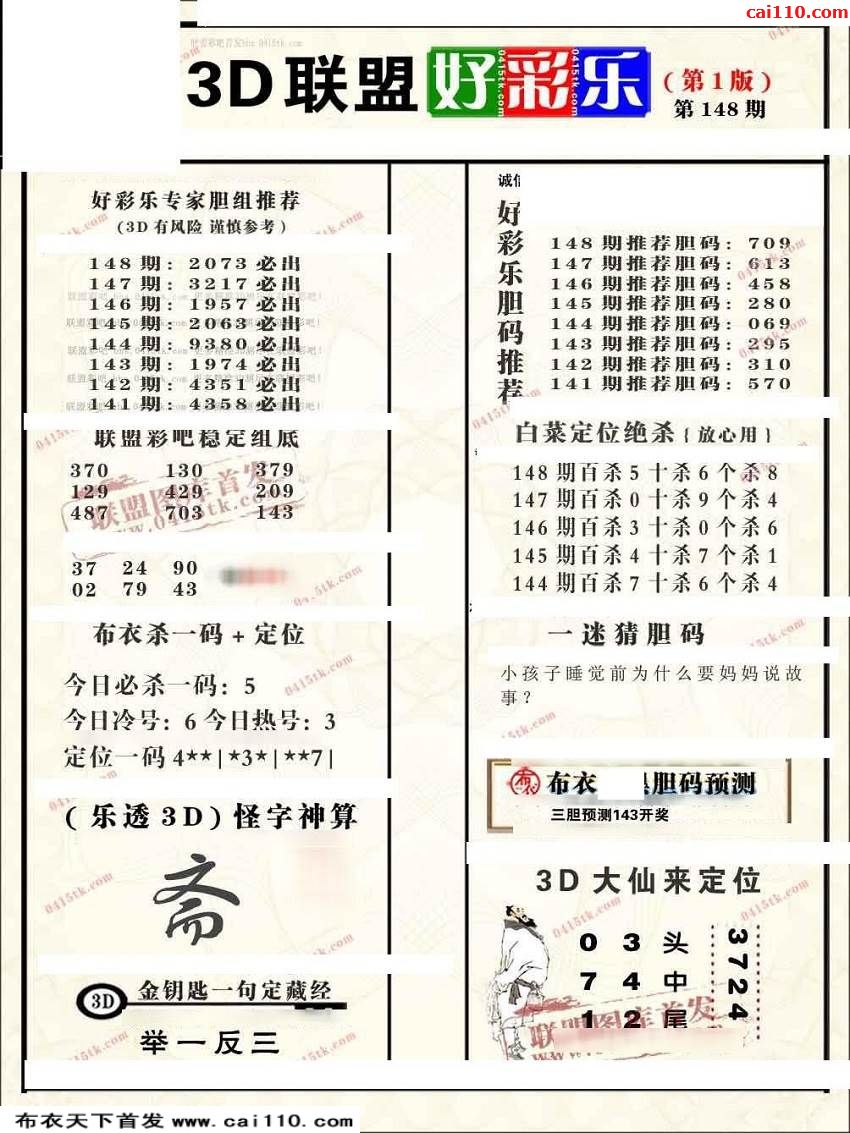 cai110.com
3D联盟好彩乐
(第1版)
第148期
好彩乐专家胆组推荐
(3D有风险 谨慎参考)
148期: 2073必出
147期: 3217必出
146期: 1957必出
145期: 2063必出
144期: 9380必出
143期: 1974必出
142期: 4351必出
141期: 4358必出
联盟彩吧稳定组底
370 130 379
129 429 209
487 703 143
37 24 90
02 79 43
布衣杀一码+定位
今日必杀一码: 5
今日冷号: 6 今日热号: 3
定位一码4**|*3*|**7|
(乐透3D)怪字神算
斋
3D 金钥匙一句定藏经
举一反三
诚信
好彩乐胆码推荐
148期推荐胆码: 709
147期推荐胆码: 613
146期推荐胆码: 458
145期推荐胆码: 280
144期推荐胆码: 069
143期推荐胆码: 295
142期推荐胆码: 310
141期推荐胆码: 570
白菜定位绝杀{放心用}
148期百杀5十杀6个杀8
147期百杀0十杀9个杀4
146期百杀3十杀0个杀6
145期百杀4十杀7个杀1
144期百杀7十杀6个杀4
一迷猜胆码
小孩子睡觉前为什么要妈妈说故
事?
布衣 胆码预测
三胆预测143开奖
3D大仙来定位
0 3头
7 4中
1 2尾
3724
联盟图库首发
www.0415tk.com
布衣天下首发 www.cai110.com